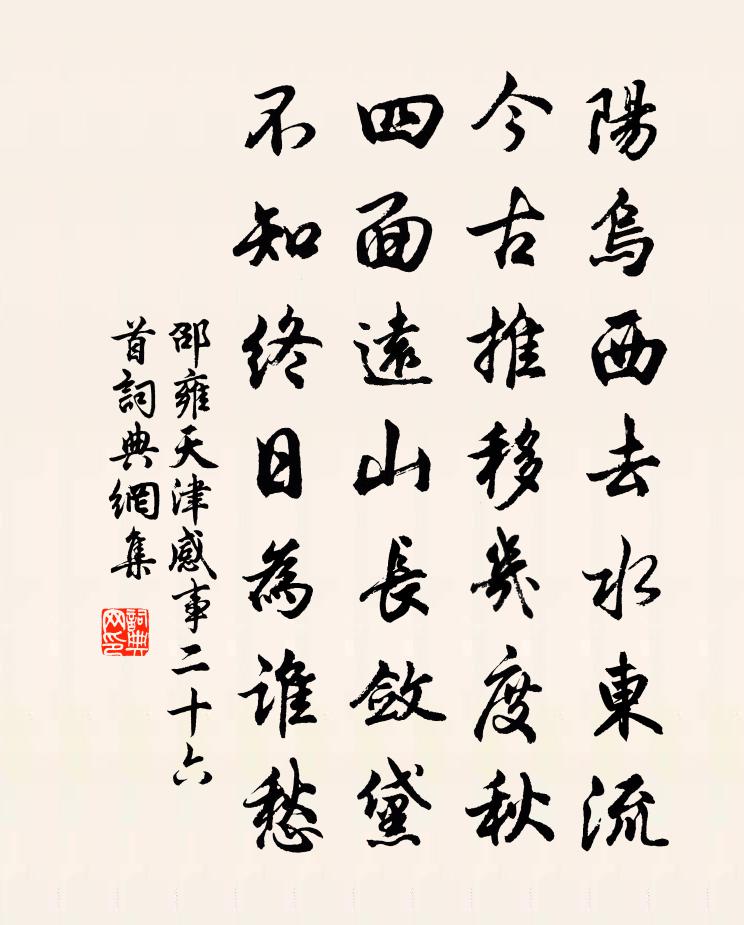 陽烏西去水東流
今古推移幾度秋
四面遠山長斂黛
不知終日為誰愁
邵雍天津感事二十六
首詞典網集
詞典网印